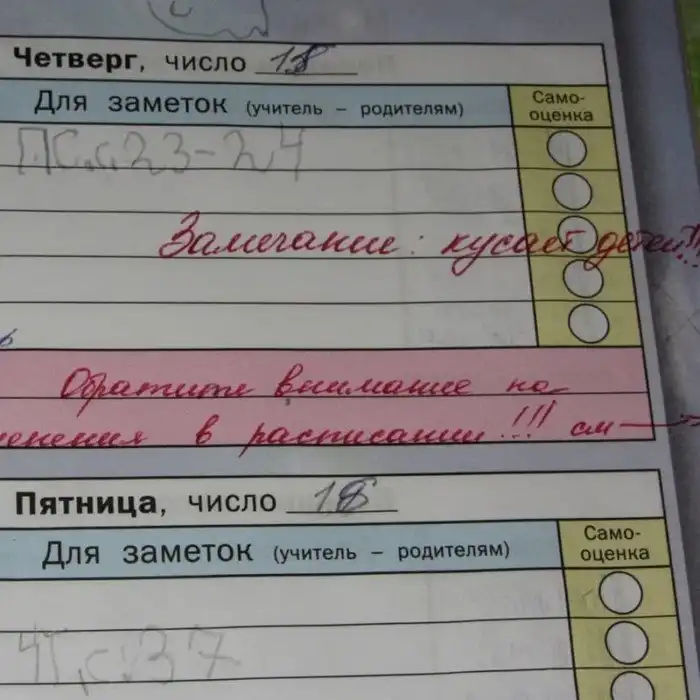 Четверг, число 18
Для заметок (учитель – родителям) Само-
оценка
П.С.с.23-24
Замечание: кусает детей!!!
Обратите внимание на
менения в расписании!!! см →
Пятница, число
Для заметок (учитель – родителям) Само-
оценка
ЧТ.с.37